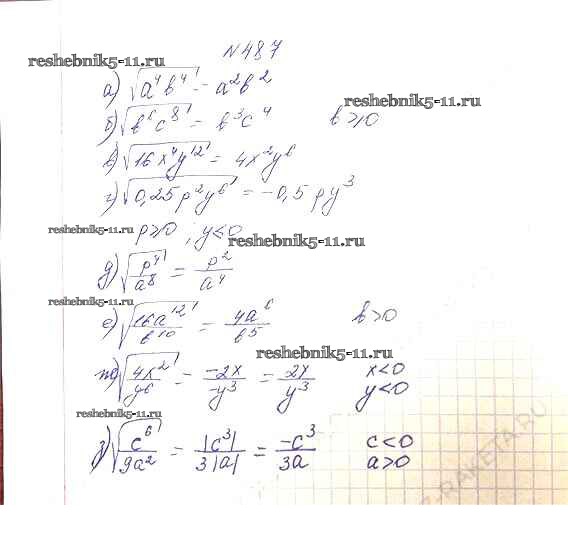 №487
reshebnik5-11.ru
а) √(a⁴b⁴) = a²b²
reshebnik5-11.ru
б) √(b⁶c⁸) = b³c⁴ b≥0
в) √(16x⁴y¹²) = 4x²y⁶
г) √(0,25p²y⁶) = -0,5py³
reshebnik5-11.ru p≥0, y<0
reshebnik5-11.ru
д) √(p⁴/a⁸) = p²/a⁴
reshebnik5-11.ru
е) √(16a¹²/b¹⁰) = 4a⁶/b⁵ b>0
reshebnik5-11.ru
ж) √(4x²/y⁶) = -2x/-y³ = 2x/y³ x<0
y<0
reshebnik5-11.ru
з) √(c⁶/9a²) = |c³|/3|a| = -c³/3a c<0
a>0